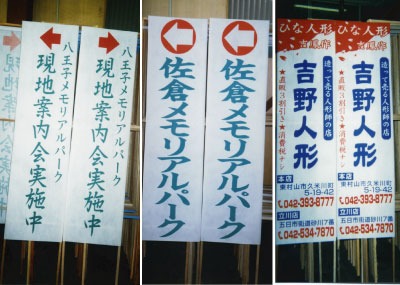 八王子メモリアルパーク
現地案内会実施中
八王子メモリアルパーク
現地案内会実施中
佐倉メモリアルパーク
佐倉メモリアルパーク
ひな人形
造って売る人形師の店
吉野人形
★直販3割引き★消費税ナシ
本店
東村山市久米川町
5-19-42
042-393-8777
立川店
五日市街道砂川7番
042-534-7870
ひな人形
造って売る人形師の店
吉野人形
★直販3割引き★消費税ナシ
本店
東村山市久米川町
5-19-42
042-393-8777
立川店
五日市街道砂川7番
042-534-7870